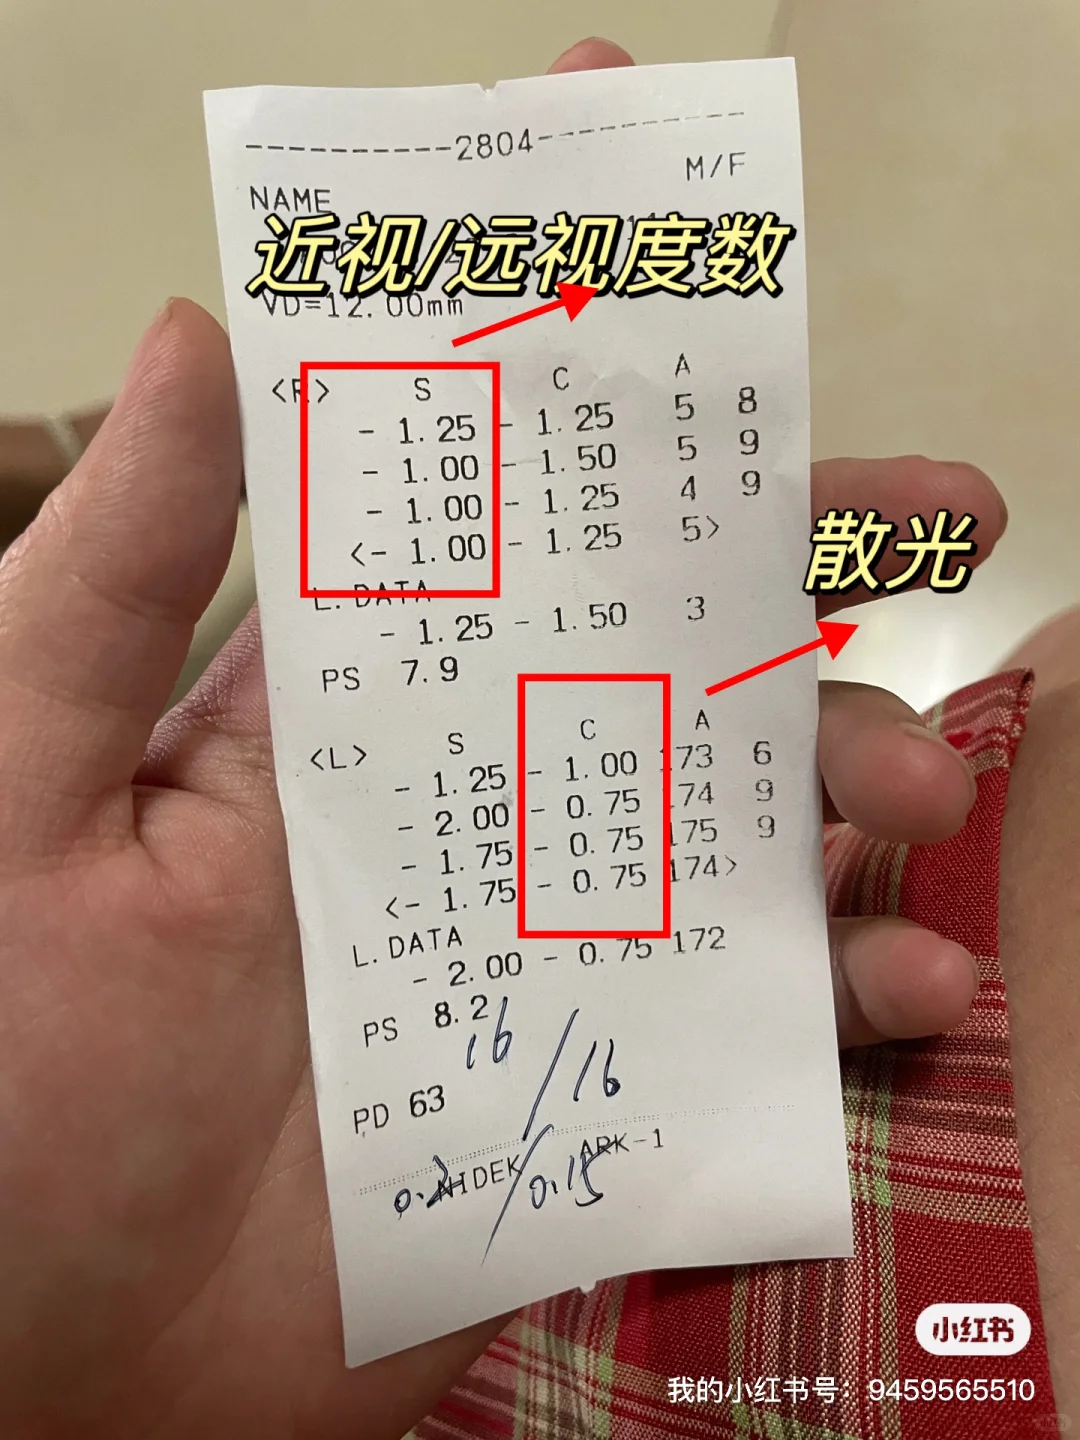 ----------2804----------
M/F
NAME
近视/远视度数
VD=12.00mm
<R> S C A
- 1.25 - 1.25 5 8
- 1.00 - 1.50 5 9
- 1.00 - 1.25 4 9
<- 1.00 - 1.25 5>
散光
L.DATA
- 1.25 - 1.50 3
PS 7.9
<L> S C A
- 1.25 - 1.00 173 6
- 2.00 - 0.75 174 9
- 1.75 - 0.75 175 9
<- 1.75 - 0.75 174>
L.DATA
- 2.00 - 0.75 172
PS 8.2
16/16
PD 63
NIDEK ARK-1
0.2/0.15
小红书
我的小红书号：9459565510